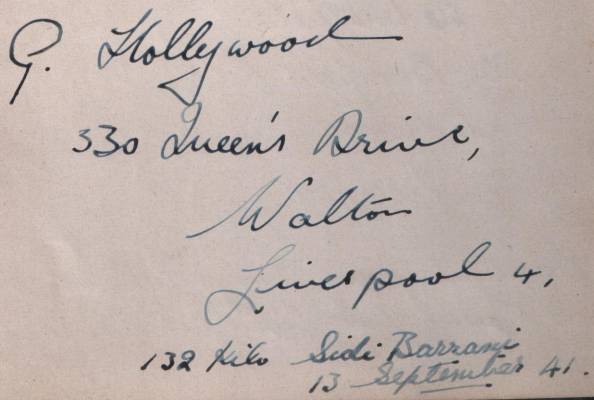 G. Hollywood
330 Queen's Drive,
Walton
Liverpool 4.
132 Kilo Sidi Barrani
13 September 41.